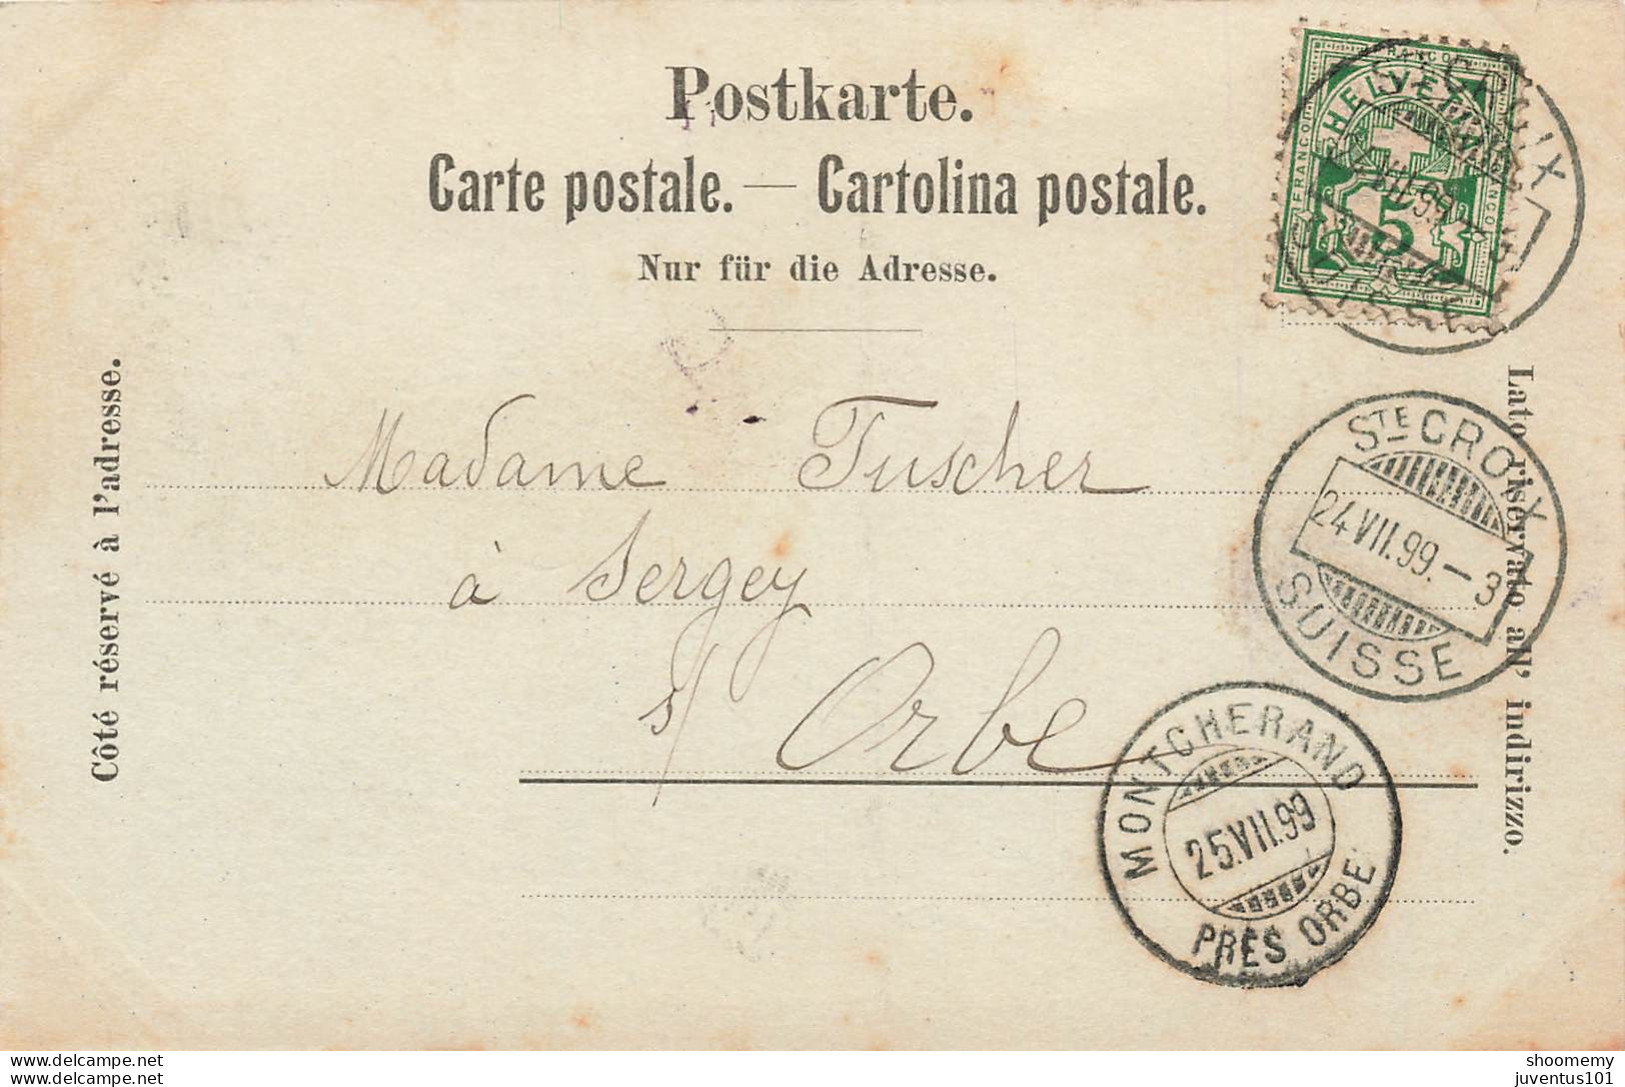 Postkarte.
Carte postale. — Cartolina postale.
Nur für die Adresse.
Côté réservé à l'adresse.
Lato riservato all' indirizzo.
FRANCO
HELVETIA
FRANCO
FRANCO
5
STE CROIX
24.VII.99.–3
SUISSE
Madame Tuscher
à Sergey
s/ Orbe
MONTCHERAND
25.VII.99
PRÈS ORBE
www.delcampe.net
www.delcampe.net
shoomemy
juventus101